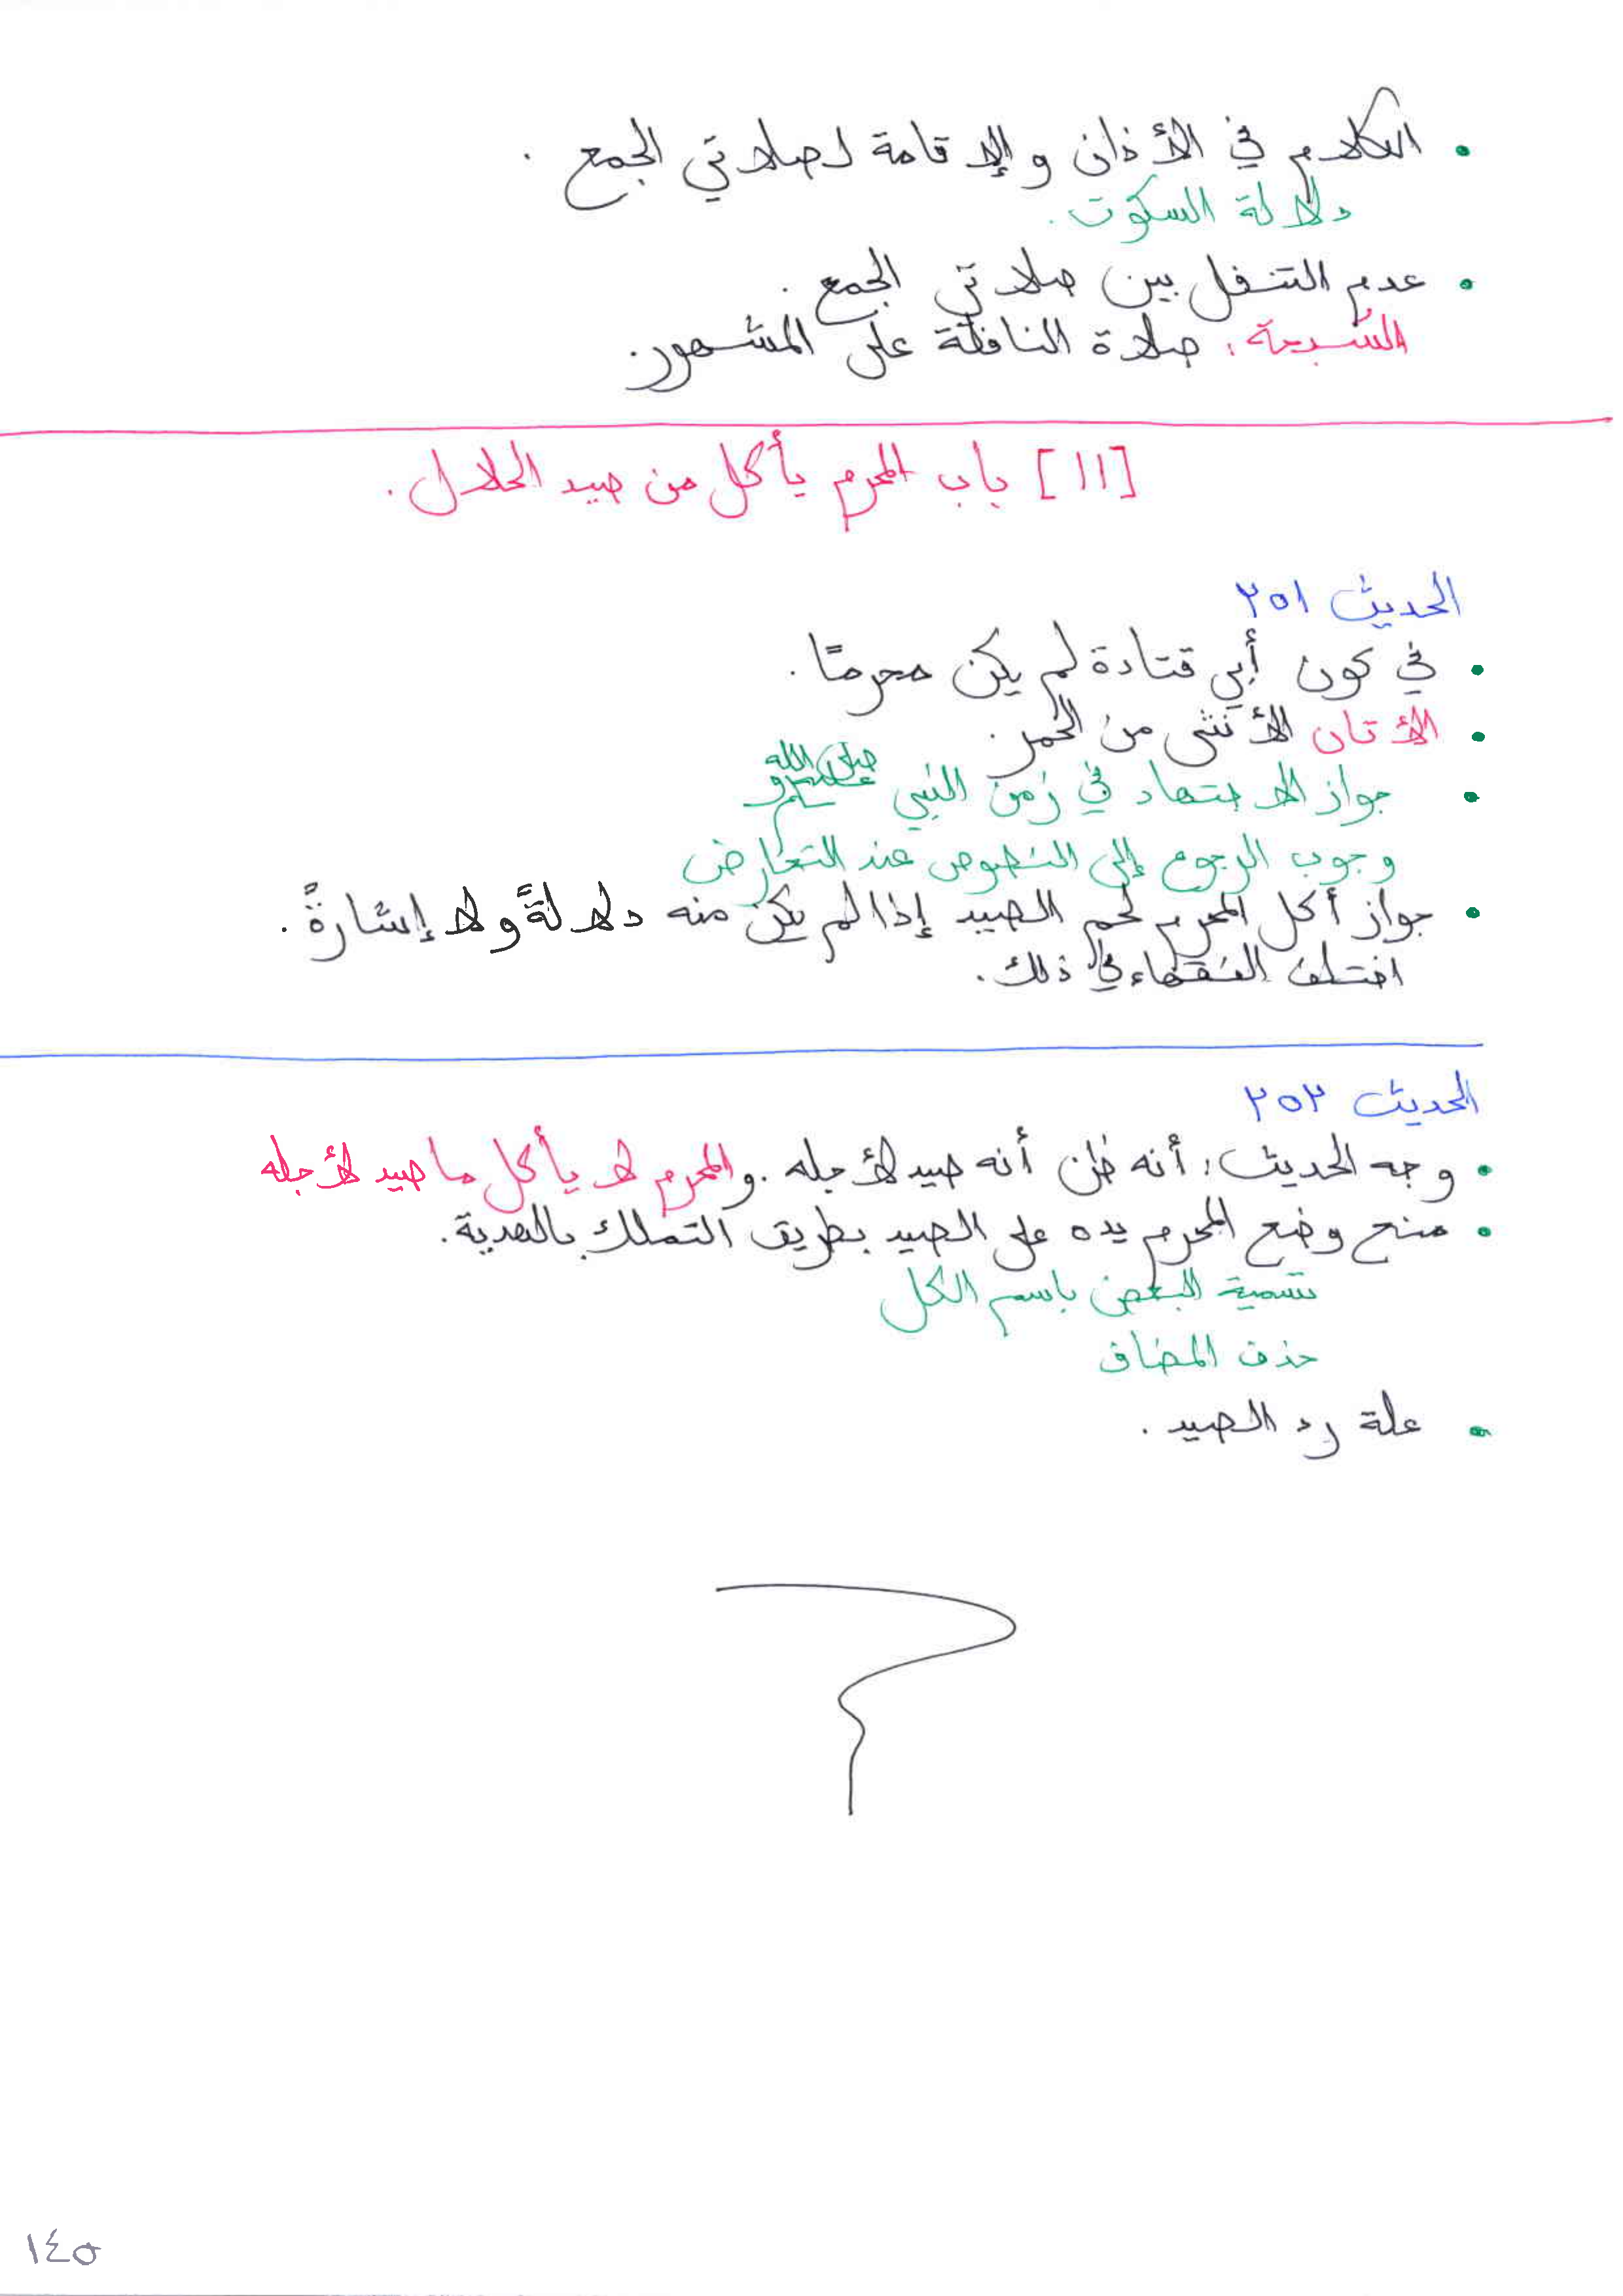 • الكلام في الأذان والإقامة لصلاتي الجمع .
دلالة السكوت .
• عدم التنفل بين صلاتي الجمع .
السُّبحة : صلاة النافلة على المشهور .
[١١] باب المحرم يأكل من صيد الحلال .
الحديث ٢٥١
• في كون أبي قتادة لم يكن محرمًا .
• الأتان الأنثى من الحُمر .
• جواز الاجتهاد في زمن النبي صلى الله عليه وسلم
وجوب الرجوع إلى النصوص عند التعارض
• جواز أكل المحرم لحم الصيد إذا لم يكن منه دلالةً ولا إشارةً .
اختلف الفقهاء في ذلك .
الحديث ٢٥٢
• وجه الحديث : أنه ظن أنه صيد لأجله . والمحرم لا يأكل ما صيد لأجله
• منع وضع المحرم يده على الصيد بطريق التملك بالهدية .
تسمية البعض باسم الكل
حذف المضاف
• علة رد الصيد .
١٤٥